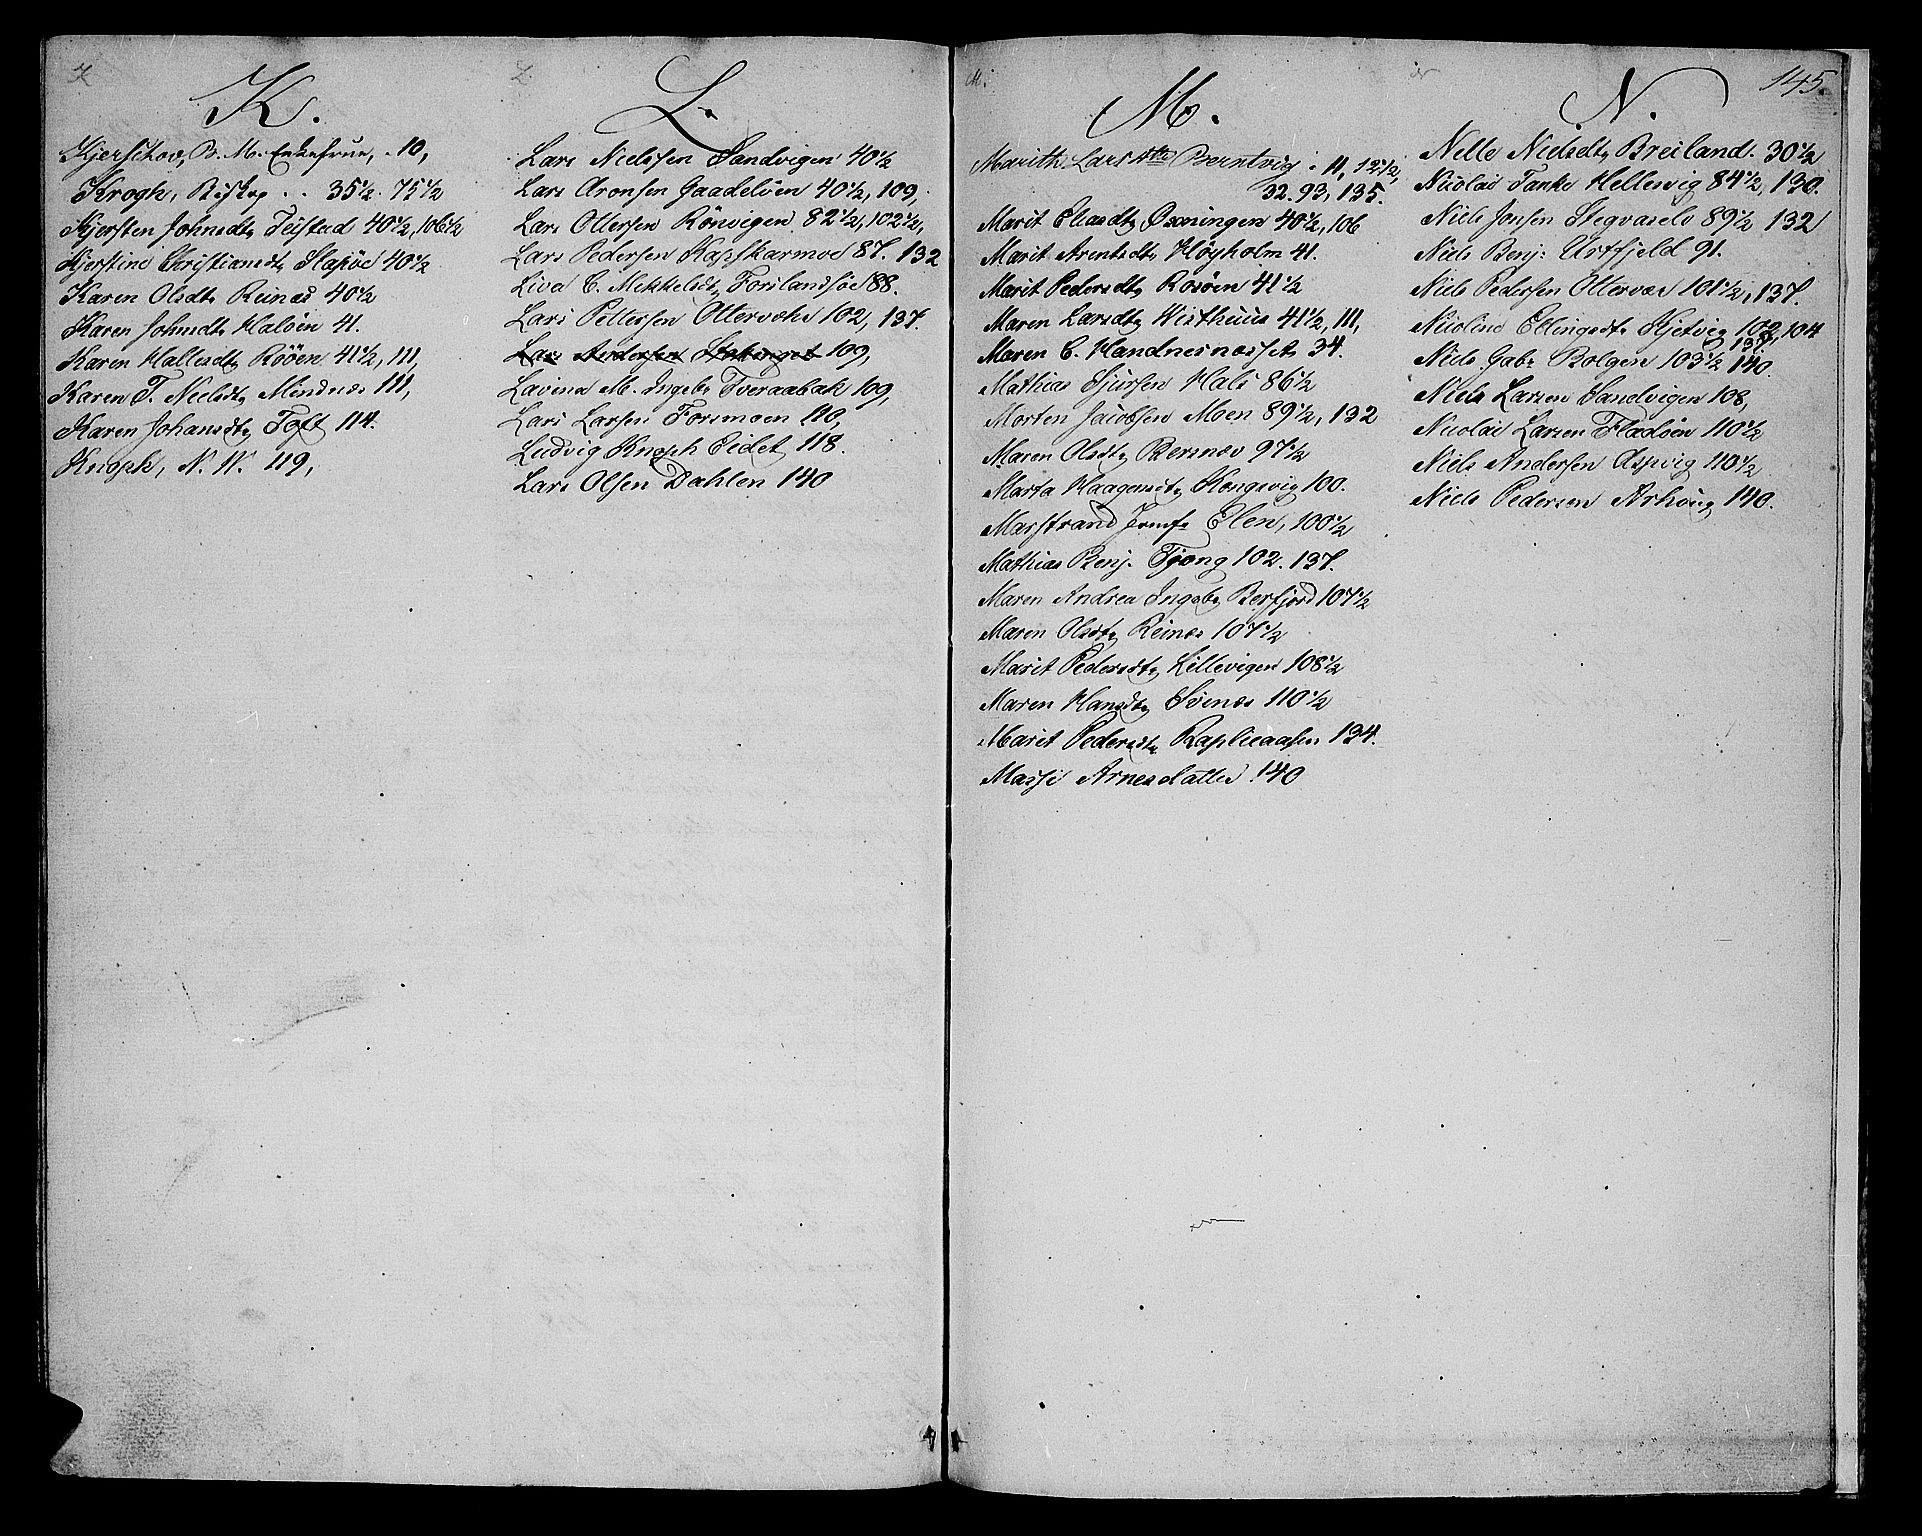 K
K.
Kjerschov, B. M. Enkefrue, . 10,
Krogh, Biskop . . 35½. 75½
Kjersten Johnsdtr Teistad 40½, 106½
Kjerstine Christiansdtr Slapøe 40½
Karen Olsdtr Reines 40½
Karen Johnsdtr Haløen 41.
Karen Hallesdtr Röøen 41½, 111,
Karen T. Nielsdtr Mindnæs 111,
Karen Johansdtr Toft 114.
Knoph, N. W. 119,
L.
L.
Lars Nielssen Sandvigen 40½
Lars Aronsen Gaadeløen 40½, 109,
Lars Ottersen Rönvigen 82½, 102½,
Lars Pedersen Kapskarmoe 87. 132
Liva C. Mekkelsdtr Forslandsöe 88.
Lars Pettersen Ottervæhr 102, 137.
Lars Andersen 109,
Lavina M. Ingebr Tveraabak 109,
Lars Larsen Forsmoen 110,
Ludvig Knoph Eidet 118.
Lars Olsen Dahlen 140
M.
M.
Marith Larsdtr Brentvig . 11, 12½,
32. 93, 135.
Marit Eliasdtr Øxningen 40½, 106
Marit Arentsdtr Høyholm 41.
Marit Pedersdtr Rosøen 41½
Maren Larsdtr Wisthuus 41½, 111,
Maren C. Handnesnæsset 34.
Mathias Sjursen Hals 86½
Morten Jacobsen Moen 89½, 132
Maren Olsdtr Bersnæs 97½
Marta Haagensdtr Kongsvig 100.
Marstrand Jomfr Elen, 100½
Mathias Benj. Tjong 102. 137.
Maren Andrea Ingebr Berfjord 107½
Maren Olsdtr Reines 107½
Marit Pedersdtr Lillevigen 108½
Maren Hansdtr Svines 110½
Marit Pedersdtr 134.
Massi Arnesdatter 140
N.
145.
Nille Nielsdtr Breiland. 30½
Nicolai Tanke Hellesvig 84½, 130.
Niels Jonsen Stegvaselv 89½ 132
Niels Benj: Urtfjeld 91.
Niels Pedersen Ottervær 101½, 137.
Nicoline Ellingsdtr Kjelvig 102, 104
137,
Niels Gabr Bolgen 103½ 140.
Niels Larsen Sandvigen 108,
Nicolai Larsen Fladøen 110½
Niels Andersen Aspvig 110½
Niels Pedersen Arhoug 140.